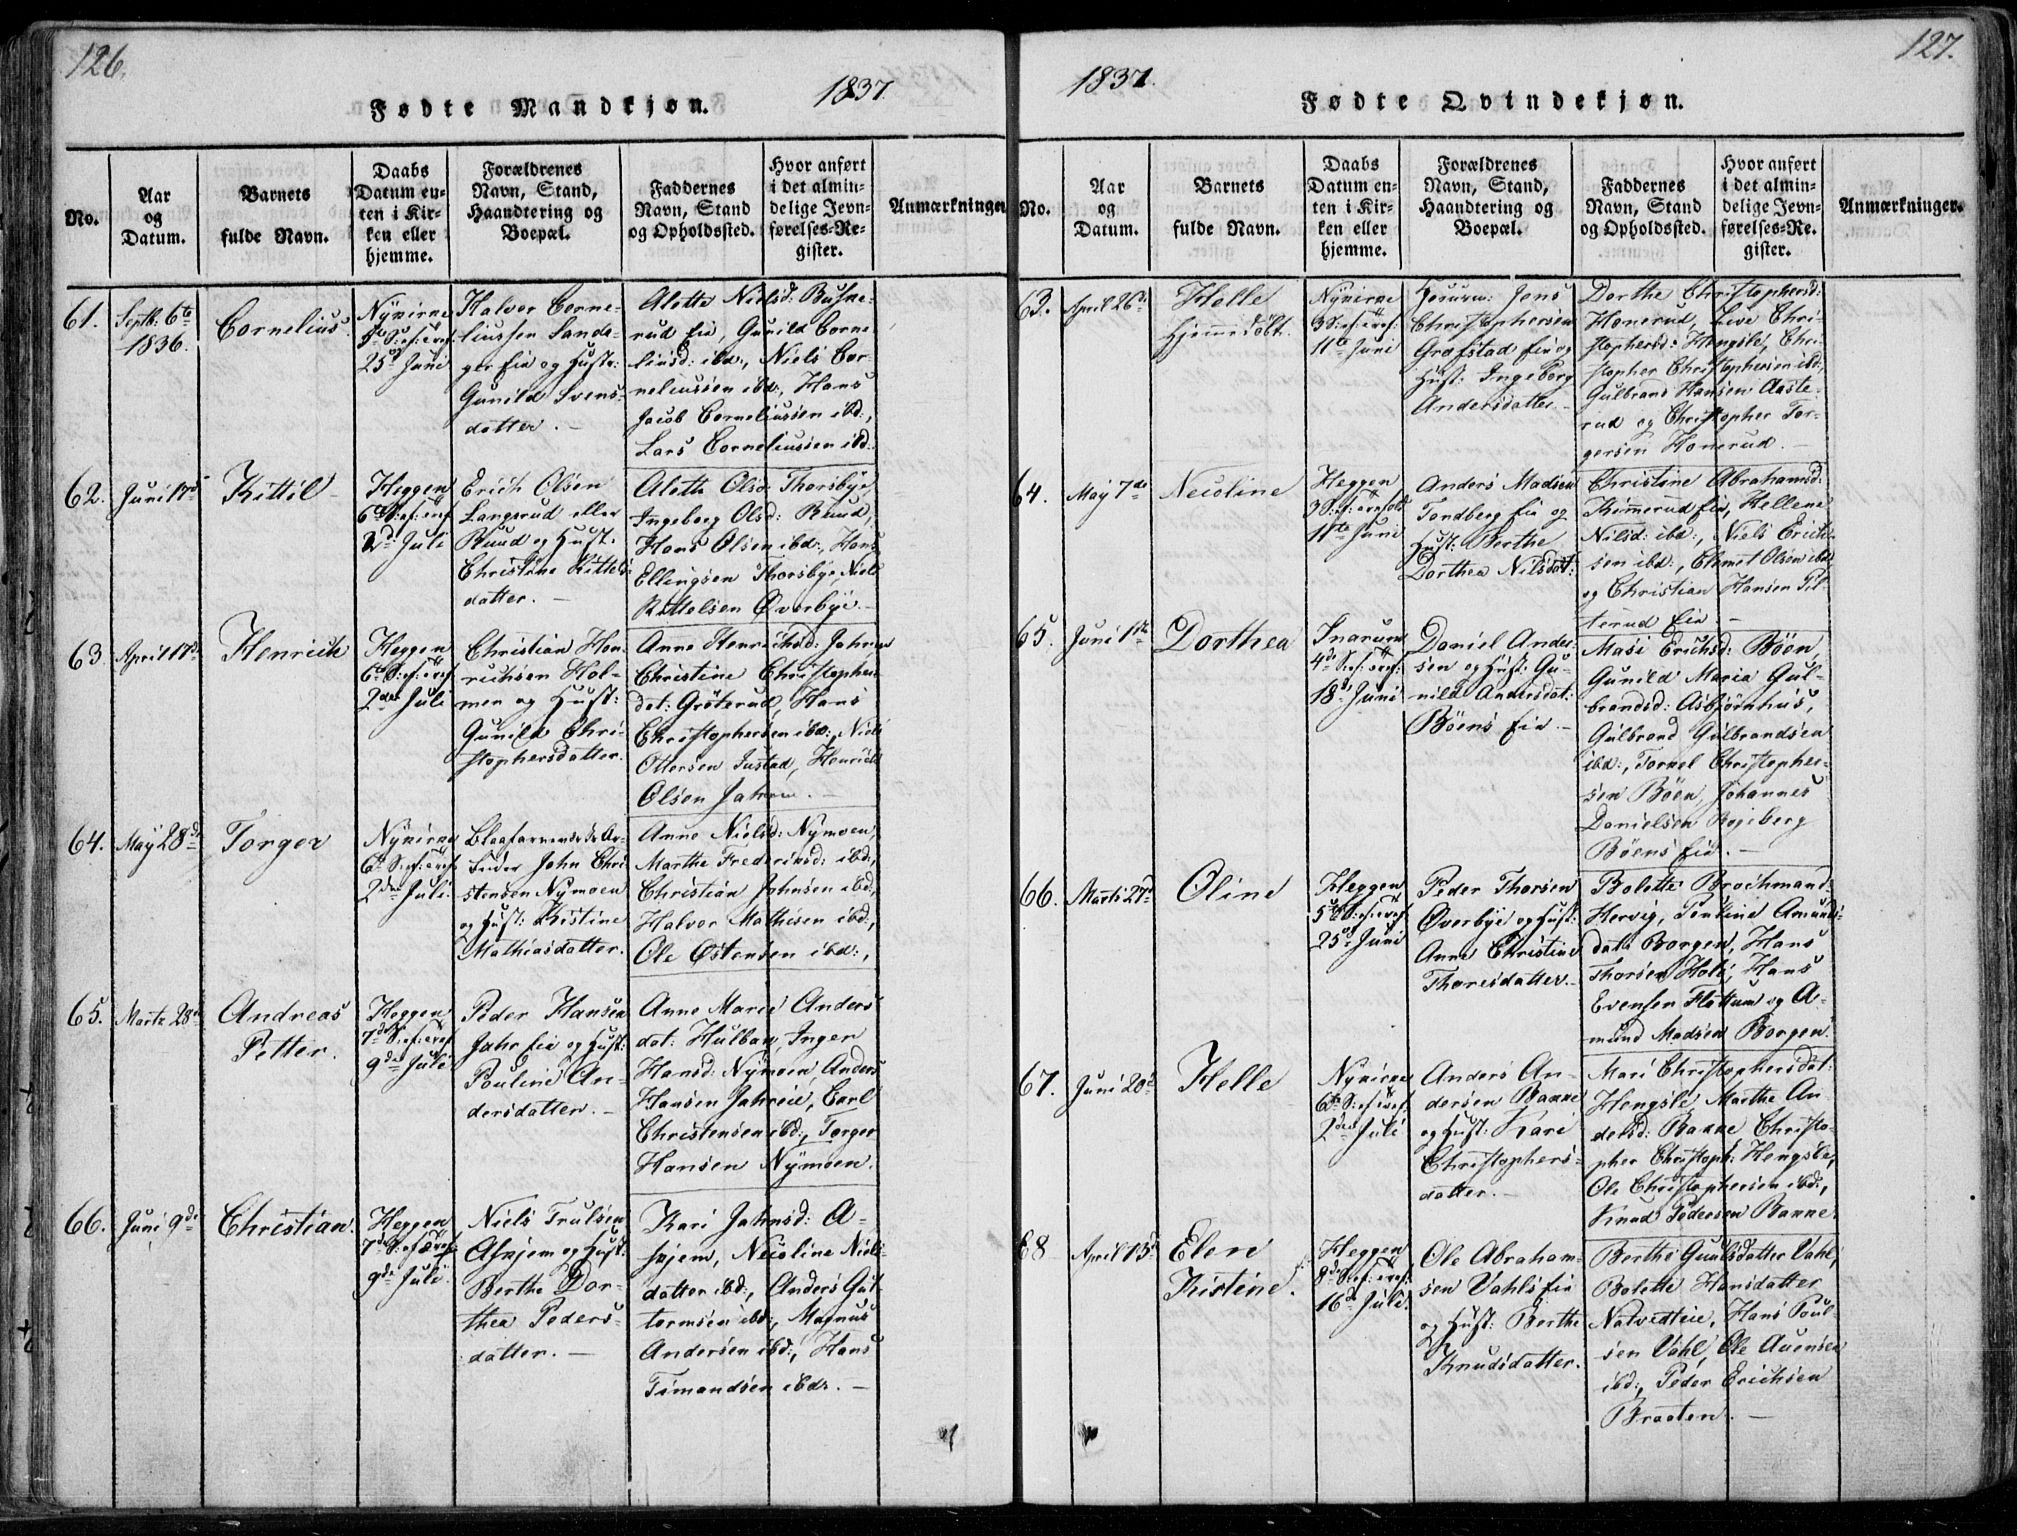 126.
1837.
Fødte Mandkjøn.
No.
Aar
og
Datum.
Barnets
fulde Navn.
Daabs
Datum en-
ten i Kir-
ken eller
hjemme.
Forældrenes
Navn, Stand,
Haandtering og
Boepæl.
Faddernes
Navn, Stand
og Opholdssted.
Hvor anført
i det almin-
delige Jevn-
førelses-Re-
gister.
Anmærkninger
61.
Septb: 6te
1836.
Cornelius.
Nykirke
25de Juni
Halvor Corne-
liussen Sande-
ger Eie og Hustr:
Gunild Svens-
datter. –
Alette Nielsd: Buske-
rud Eie, Gunild Corne-
liusd: ibd:, Niels Cor-
neliussen ibd:, Hans
Jacob Corneliussen ibd:,
Lars Corneliussen ibd:
62.
Juni 17de
Kittil –
Heggen
6te S: ef: tref
2den Juli
Erich Olsen
Langerud eller
Ruud og Hust:
Christine Kittels-
datter. –
Aleth Olsd: Thorsbye
Ingeborg Olsd: Ruud,
Hans Olsen ibd:, Hans
Ellingsen Thorsbye, Niels
Kittelsen Øverbye. –
63
April 17de
Henrich
Heggen
6te S: ef: tref
2den Juli
Christian Hen-
richsen Hol-
men og Hust:
Gunild Chri-
stophersdatter.
Anne Henrichsd: Jahren
Christine Christophers-
dat: Grøterud, Hans
Christophersen ibd:, Niels
Ottersen Justad, Henrich
Olsen Jahren. –
64.
May 28de
Torger
Nykirke
6te S: ef: tref
2den Juli.
Blaafarveværks Ar-
beider John Chri-
stensen Nymoen
og Hust: Kistine
Mathiasdatter.
Anne Nielsd: Nymoen,
Marthe Frederiksd: ibd:,
Christian Johnsen ibd:,
Halvor Mathisen ibd:,
Ole Østensen ibd:,
65.
Marts 28de
Andreas
Petter.
Heggen
7de S: ef: tref
9de Juli
Peder Hansen
Jahr Eie og Hust:
Pouline An-
dersdatter. –
Anne Marie Anders-
dat: Hulbak, Inger
Hansd: Nymoen, Anders
Hansen Jahreie, Carl
Christensen ibd:, Torger
Hansen Nymoen.
66.
Juni 9de
Christian.
Heggen
7de S: ef: tref
9de Juli
Niels Trulsen
Askjem og Hust:
Berthe Dor-
thea Peders-
datter. –
Kari Jahnsd: A-
skjem, Nicoline Niels-
datter ibd:, Anders Gut-
tormsen ibd:, Magnus
Andersen ibd:, Hans
Timandsen ibd:. –
127.
1837.
Fødte Qvindekjøn.
No.
Aar
og
Datum.
Barnets
fulde Navn.
Daabs
Datum en-
ten i Kir-
ken eller
hjemme.
Forældrenes
Navn, Stand,
Haandtering og
Boepæl.
Faddernes
Navn, Stand
og Opholdssted.
Hvor anført
i det almin-
delige Jevn-
førelses-Re-
gister.
Anmærkninger.
63.
April 26de
Helle
Hjemmedøbt.
Nykirke
3 S: ef: tref:
11te Juni
Jens
Christophersen
Grøfstad Eie og
Hust: Ingeborg
Andersdatter –
Dorthe Christophersd:
Honerud, Live Chri-
stophersd: Hengsle, Chri-
stopher Christophersen ibd:,
Gulbrand Hansen Aaste-
rud og Christopher Tor-
gersen Honerud. –
64.
May 7de
Nicoline
Heggen
3 S: ef: tref
11te Juni
Anders Madsen
Tandberg Eie og
Hust: Berthe
Dorthea Nilsdat:
Christine Abrahamsd:
Kimerud Eie, Hellene
Nilsd: ibd:, Niels Erich-
sen ibd:, Clemet Olsen ibd:
og Christian Hansen Til-
terud Eie –
65.
Juni 1ste
Dorthea
Snarum
4de S: ef: tref:
18de Juni
Daniel Ander-
sen og Hust: Gu-
nild Andersdat:
Bøens Eie –
Masi Erichsd: Bøen,
Gunild Maria Gul-
brandsd: Asbjørnhus,
Gulbrand Gulbrandsen
ibd:, Torkel Christopher-
sen Bøen, Johannes
Danielsen
Bøens Eie. –
66.
Marts 27de
Oline
Heggen
5te S: ef: tref
25de Juni
Peder Thorsen
Øverbye og Hust:
Anne Christine
Thoresdatter –
Bolette Brochmand
Hervig, Amunds-
dat: Borgen, Hans
Thorsen Hole, Hans
Evensen Flattum og A-
mund Madsen Borgen.
67.
Juni 20de
Helle
Nykirke
6te S: ef: tref
2den Juli
Anders An-
dersen Bakke
og Hust: Kari
Christophers-
datter. –
Mari Christophersdat:
Hengsle, Marthe An-
dersd: Bakke Christo-
pher Christoph: Hengsle,
Ole Christophersen ibd:,
Knud Pedersen Bakke.
68
April 13de
Elen
Kistine.
Heggen
8de S: ef: tref:
16de Juli.
Ole Abraham-
sen Vahls Eie
og Hust: Berthe
Knudsdatter.
Berthe Gunulsdatter Vahl,
Bolette Hansdatter
Natvedteie, Hans Poul-
sen Vahl, Ole Auensen
ibd:, Peder Erichsen
Braaten. –